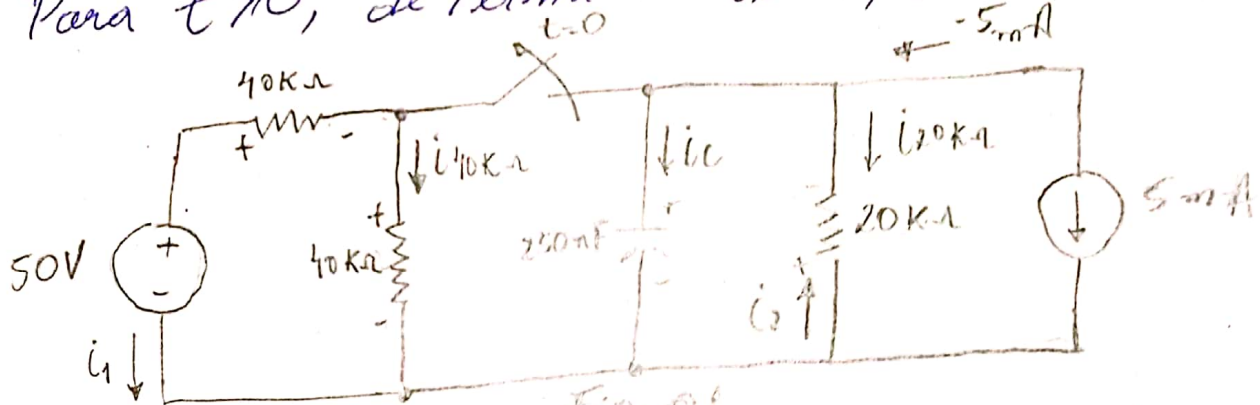 Para t>0,
t=0
-5mA
40KΩ
+ -
i40KΩ
ic
i20KΩ
+
-
50V
+
40KΩ
-
250nF
+
-
20KΩ
+
5mA
i1